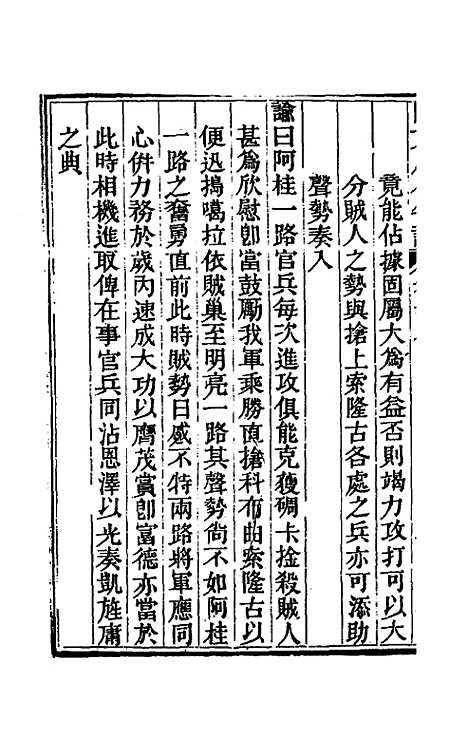 竟能佔據固屬大為有益否則竭力攻打可以大
分賊人之勢與搶上索隆古各處之兵亦可添助
聲勢奏入
諭曰阿桂一路官兵每次進攻俱能克獲碉卡捦殺賊人
甚為欣慰卽當鼓勵我軍乘勝直搶科布曲索隆古以
便迅搗噶拉依賊巢至明亮一路其聲勢尙不如阿桂
一路之奮勇直前此時賊勢日蹙不特兩路將軍應同
心併力務於歲內速成大功以膺茂賞卽富德亦當於
此時相機進取俾在事官兵同沾恩澤以光奏凱旌庸
之典